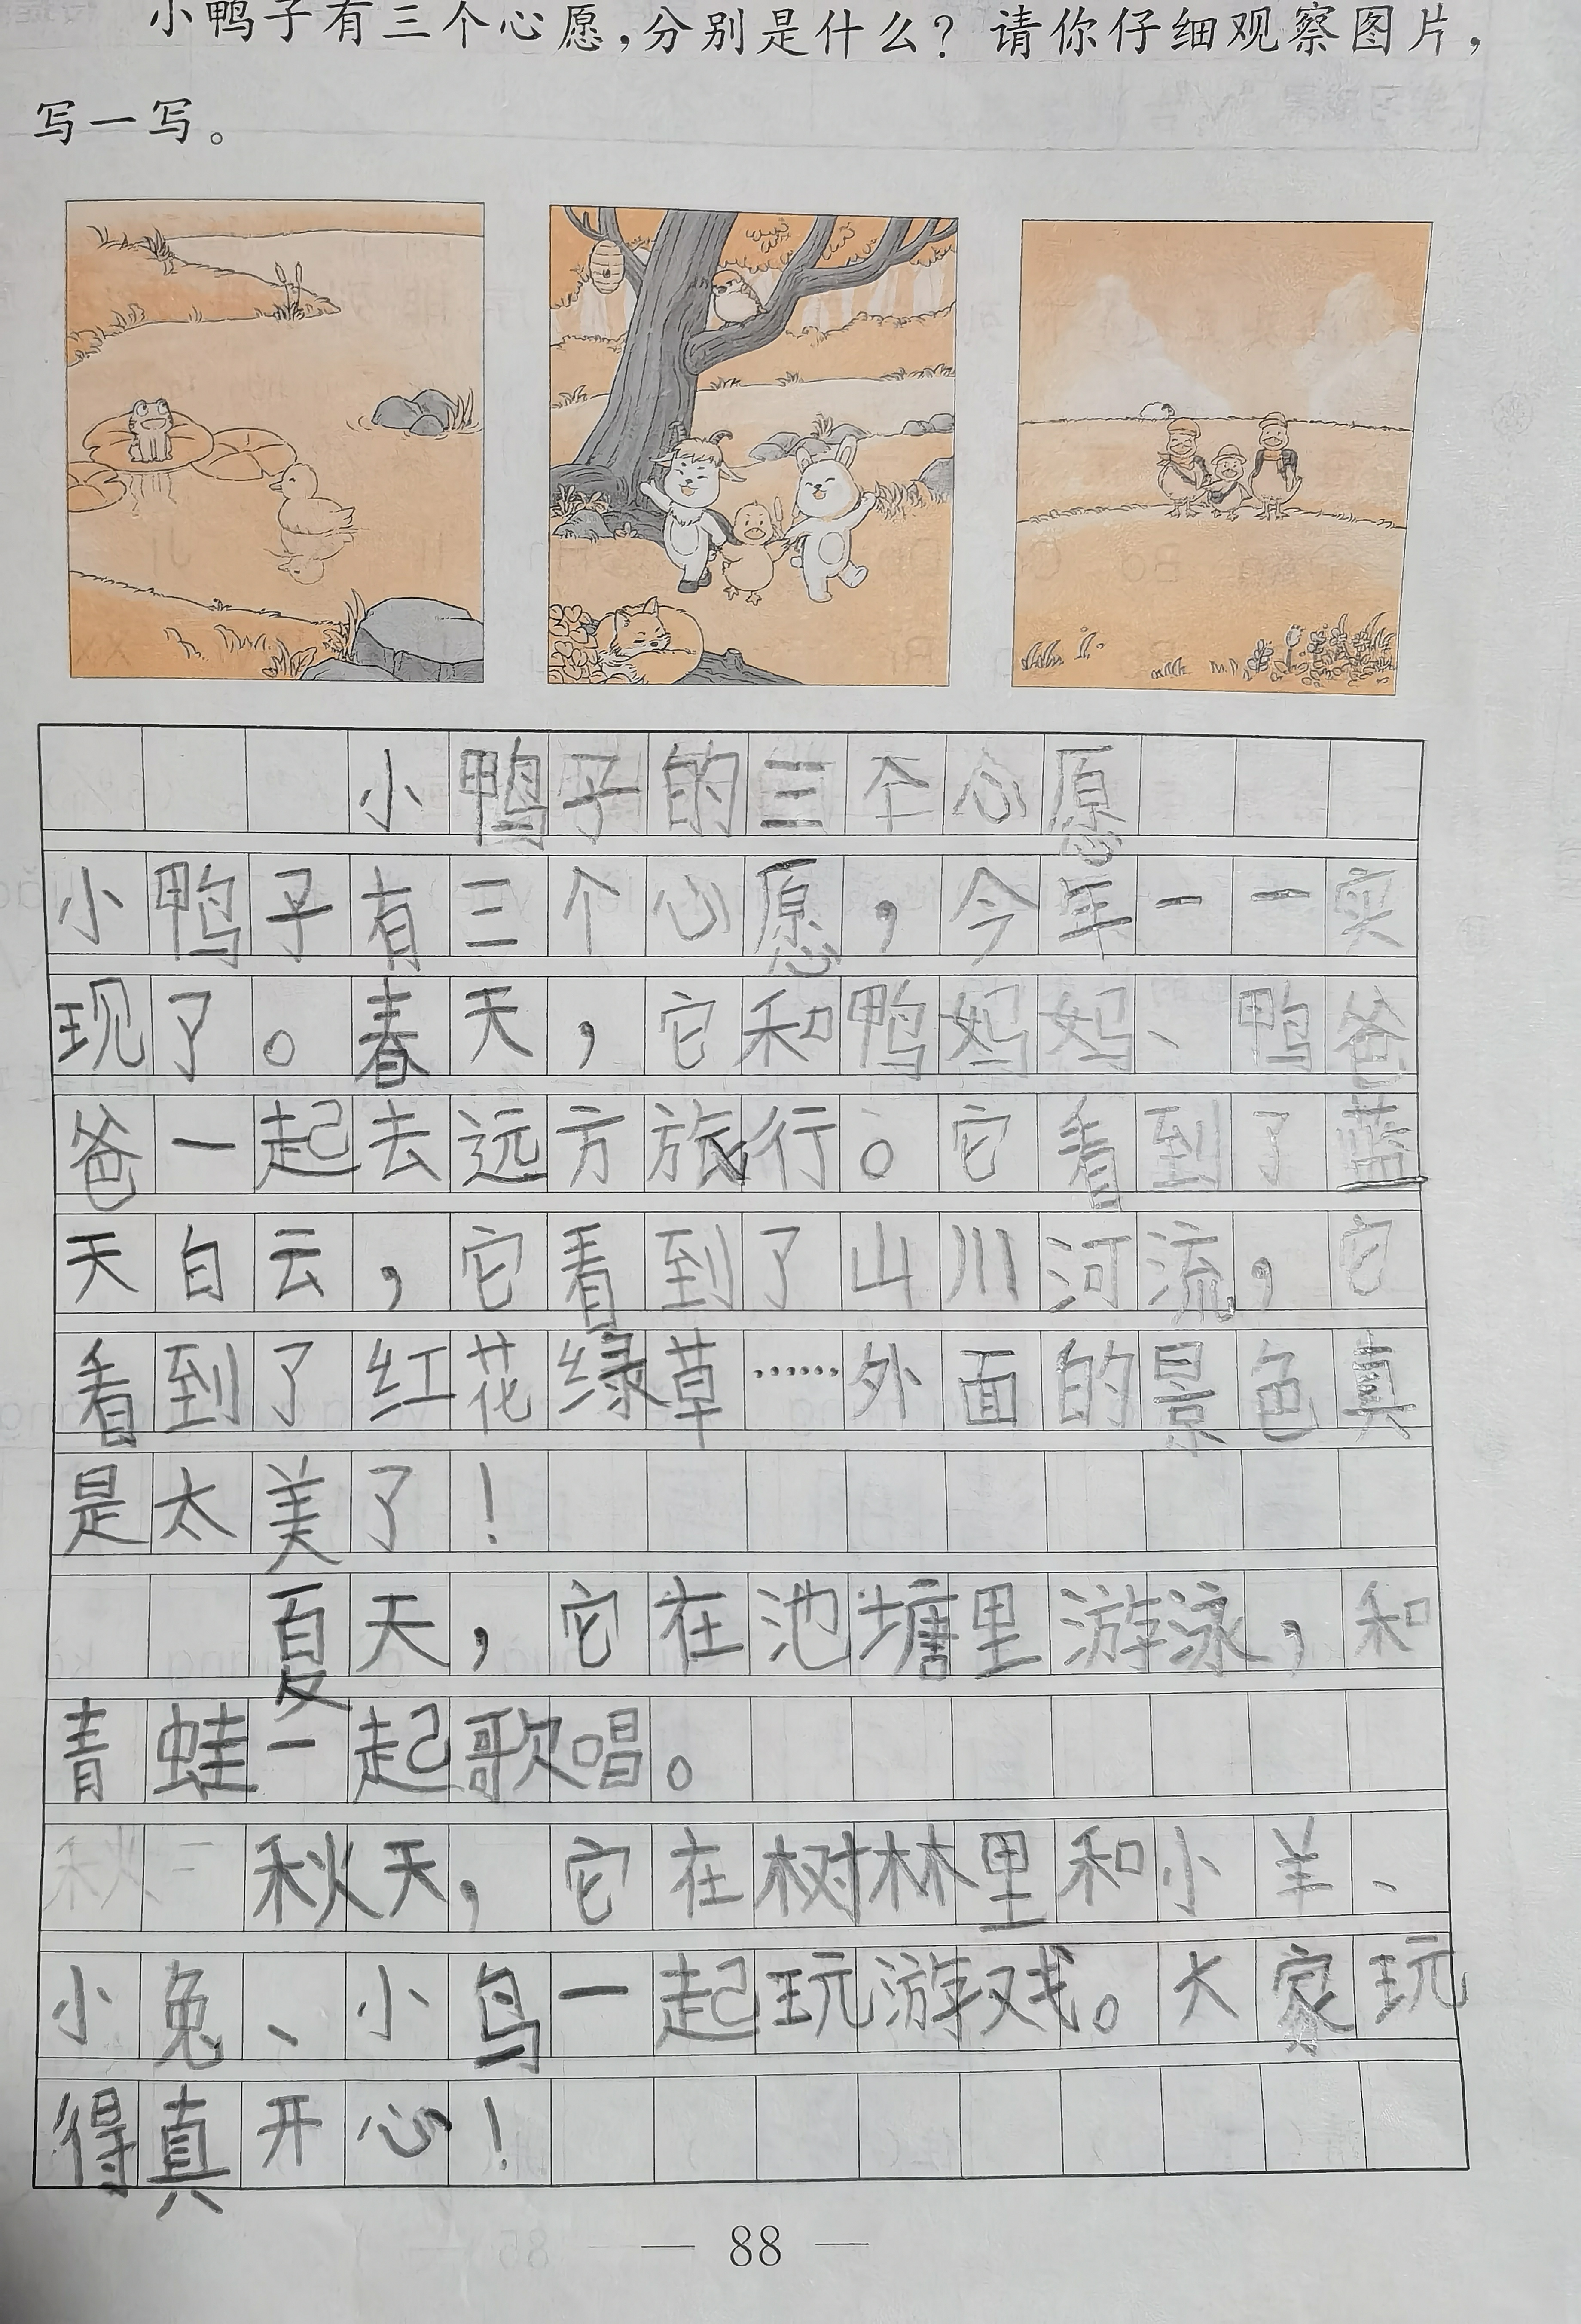 小鸭子有三个心愿，分别是什么？请你仔细观察图片，
写一写。
小鸭子的三个心愿
小鸭子有三个心愿，今年一一实
现了。春天，它和鸭妈妈、鸭爸
爸一起去远方旅行。它看到了蓝
天白云，它看到了山川河流，它
看到了红花绿草……外面的景色真
是太美了！
夏天，它在池塘里游泳，和
青蛙一起歌唱。
秋天，它在树林里和小羊、
小兔、小鸟一起玩游戏。大家玩
得真开心！
— 88 —